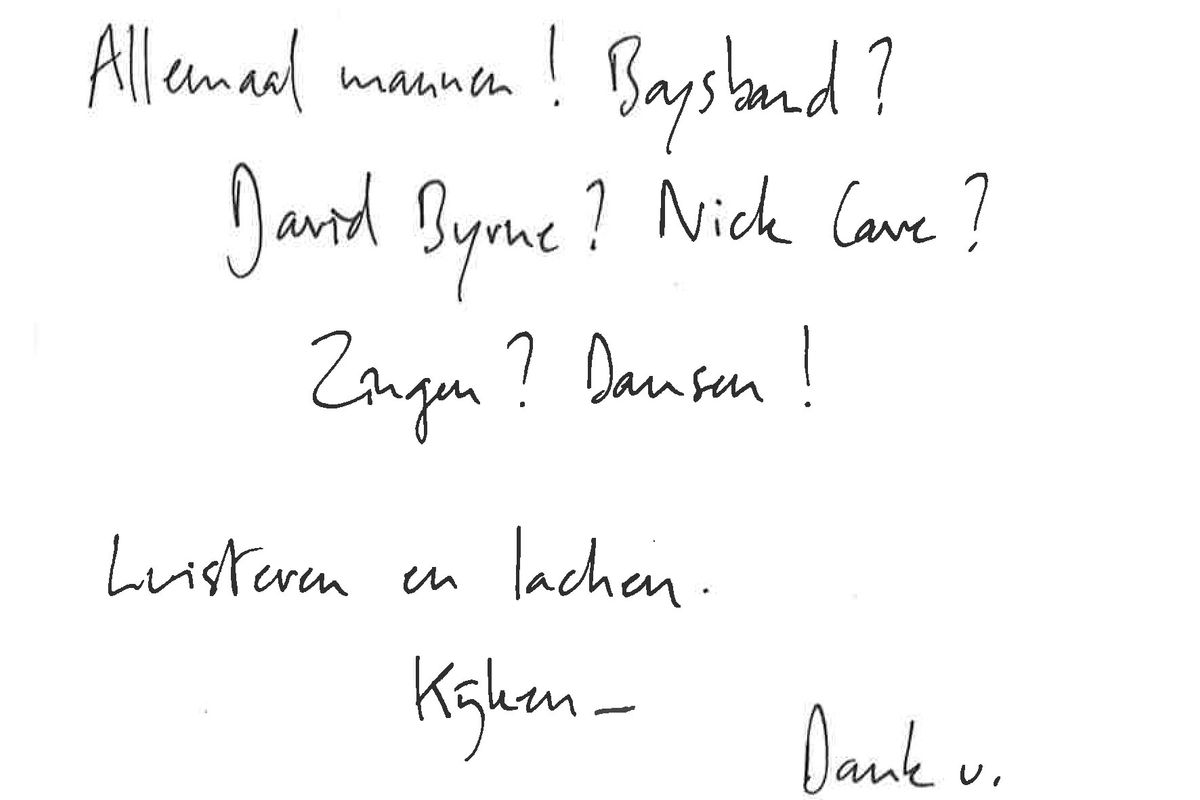 Allemaal mannen! Boysband?
David Byrne? Nick Cave?
Zingen? Dansen!
Luisteren en lachen.
Kijken_
Dank u.